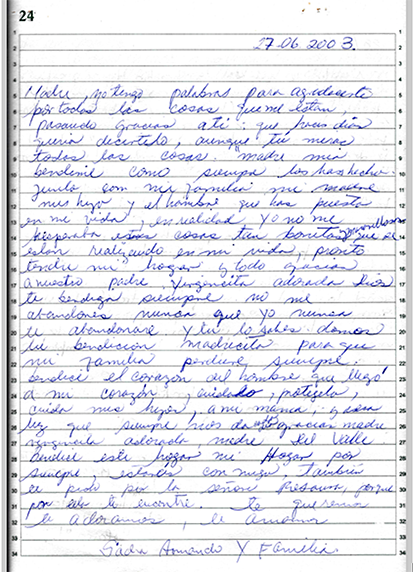 24
27-06 2003.
Madre, no tengo palabras para agradecerte
por todas las cosas que me estan
pasando gracias a ti: que
aunque tu
todas las cosas. madre mia
bendime como siempre los has hecho
junto com mi familia mi madre
mis hijo y el hombre que has puesto
en mi vida, en realidad yo no me
esperaba estas cosas tan bonitas y maravillosas que se
estan realizando en mi vida, pronto
tendre mi hogar y todo gracias
a nuestro padre. Virgencita adorada Dios
te bendiga siempre no me
abandones nunca que yo nunca
te abandonare y tu lo sabes. damos
tu bendición madrecita para que
mi familia perdure siempre.
bendice el corazón del hombre que llegó
a mi corazón, cuidado, protegelo,
cuida mis hijos, a mi mama. y
luz que siempre nos da gracias madre
virgencita adorada, madre del Valle
bendice este hogar mi Hogar por
siempre estaras con migo. También
te pido por la señora Rosaura, porque
por ella le encontre. te queremos
te adoramos, te amamos
Armando Y Familia.